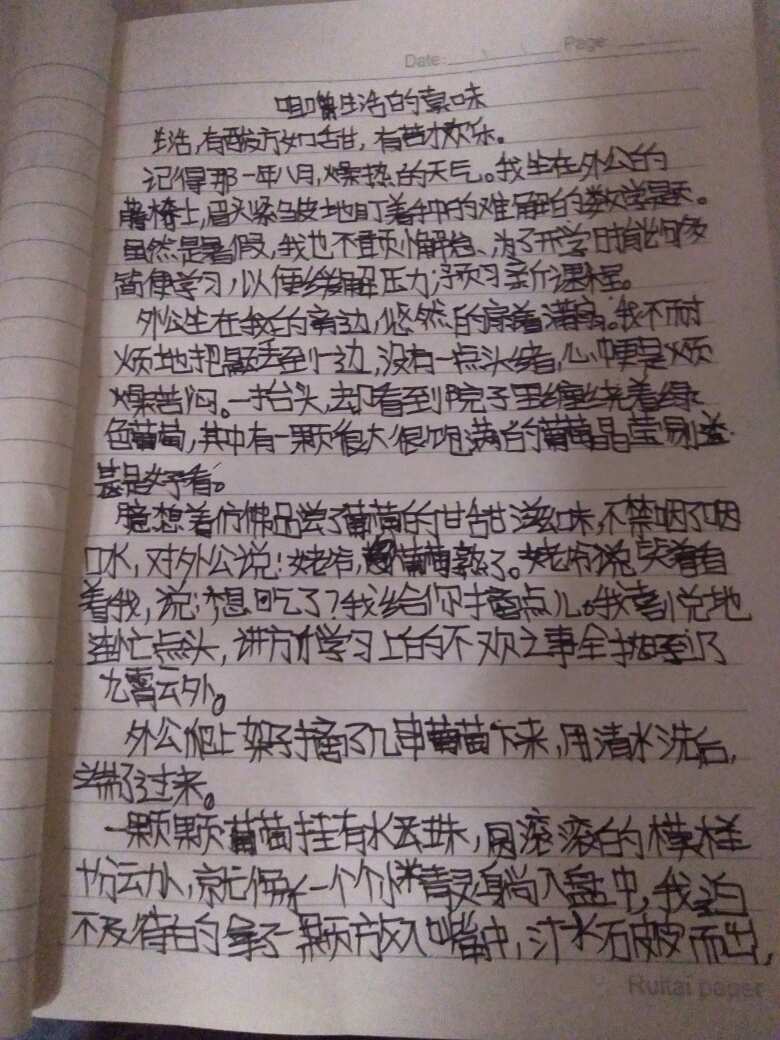 Date: Page:
咀嚼生活的意味
生活,有酸方知甘,有苦才欢乐。
记得那一年八月,燥热的天气。我坐在外公的
藤椅上,眉头紧皱地盯着手中的难解的数学题。
虽然是暑假,我也不敢懈怠、为了开学时能够
简便学习,以便缓解压力,预习新课程。
外公坐在我的旁边,悠然的扇着蒲扇。我不耐
烦地把题丢到一边,没有一点头绪,心中更是烦
燥苦闷。一抬头,却看到院子里缠绕着绿
色葡萄,其中有一颗很大很饱满的葡萄晶莹剔透
甚是好看。
臆想着仿佛品尝了葡萄的甘甜滋味,不禁咽了咽
口水,对外公说:姥爷,葡萄熟了。姥爷笑着看
着我,说:想吃了?我给你摘点儿。我喜悦地
连忙点头,讲方才学习上的不欢之事全抛到了
九霄云外。
外公爬上架子摘了几串葡萄下来,用清水洗后,
端了过来。
一颗颗葡萄挂有水珠,圆滚滚的模样
十分可爱,就像一个个小精灵躺入盘中,我迫
不及待的拿了一颗放入嘴中,汁水破皮而出,
Ruitai paper